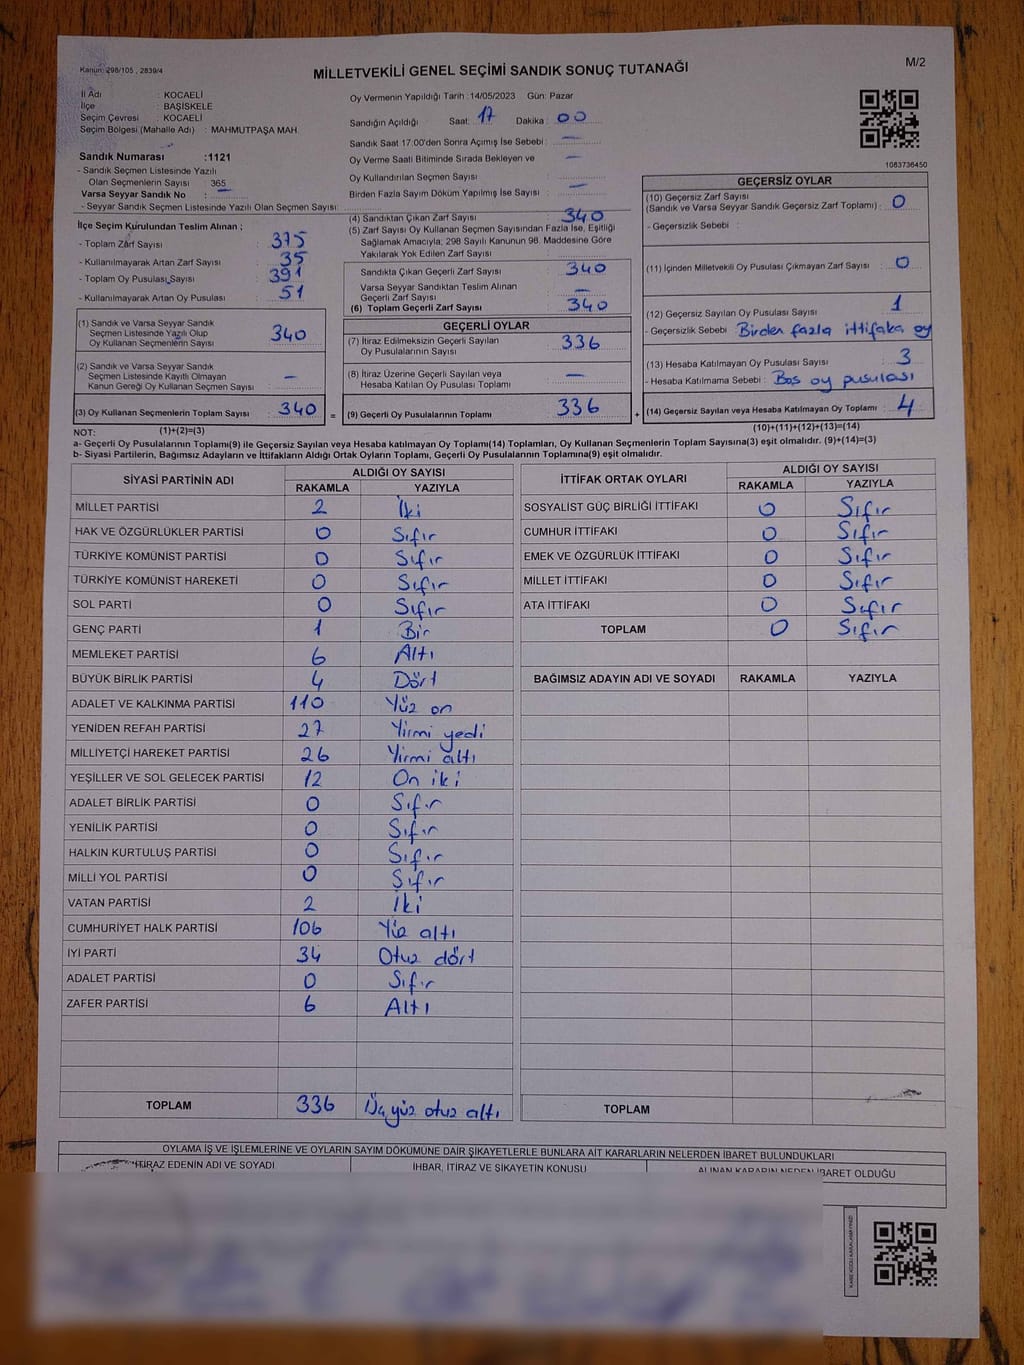 Kanun: 298/105 , 2839/4
MİLLETVEKİLİ GENEL SEÇİMİ SANDIK SONUÇ TUTANAĞI
M/2
İl Adı : KOCAELİ
İlçe : BAŞİSKELE
Seçim Çevresi : KOCAELİ
Seçim Bölgesi (Mahalle Adı) : MAHMUTPAŞA MAH.
Sandık Numarası :1121
- Sandık Seçmen Listesinde Yazılı
Olan Seçmenlerin Sayısı : 365
Varsa Seyyar Sandık No : —
- Seyyar Sandık Seçmen Listesinde Yazılı Olan Seçmen Sayısı:
Oy Vermenin Yapıldığı Tarih :14/05/2023 Gün: Pazar
Sandığın Açıldığı Saat: 17 Dakika : 00
Sandık Saat 17:00'den Sonra Açımış İse Sebebi : —
Oy Verme Saati Bitiminde Sırada Bekleyen ve —
Oy Kullandırılan Seçmen Sayısı :
Birden Fazla Sayım Döküm Yapılmış İse Sayısı : —
1083736450
İlçe Seçim Kurulundan Teslim Alınan ;
- Toplam Zarf Sayısı : 375
- Kullanılmayarak Artan Zarf Sayısı : 35
- Toplam Oy Pusulası Sayısı : 391
- Kullanılmayarak Artan Oy Pusulası : 51
(1) Sandık ve Varsa Seyyar Sandık
Seçmen Listesinde Yazılı Olup
Oy Kullanan Seçmenlerin Sayısı : 340
(2) Sandık ve Varsa Seyyar Sandık
Seçmen Listesinde Kayıtlı Olmayan
Kanun Gereği Oy Kullanan Seçmen Sayısı : —
(3) Oy Kullanan Seçmenlerin Toplam Sayısı : 340 =
(4) Sandıktan Çıkan Zarf Sayısı : 340
(5) Zarf Sayısı Oy Kullanan Seçmen Sayısından Fazla İse, Eşitliği
Sağlamak Amacıyla; 298 Sayılı Kanunun 98. Maddesine Göre
Yakılarak Yok Edilen Zarf Sayısı :
Sandıkta Çıkan Geçerli Zarf Sayısı : 340
Varsa Seyyar Sandıktan Teslim Alınan
Geçerli Zarf Sayısı : —
(6) Toplam Geçerli Zarf Sayısı : 340
GEÇERLİ OYLAR
(7) İtiraz Edilmeksizin Geçerli Sayılan
Oy Pusulalarının Sayısı : 336
(8) İtiraz Üzerine Geçerli Sayılan veya
Hesaba Katılan Oy Pusulası Toplamı : —
(9) Geçerli Oy Pusulalarının Toplamı : 336 +
GEÇERSİZ OYLAR
(10) Geçersiz Zarf Sayısı
(Sandık ve Varsa Seyyar Sandık Geçersiz Zarf Toplamı) : 0
- Geçersizlik Sebebi :
(11) İçinden Milletvekili Oy Pusulası Çıkmayan Zarf Sayısı : 0
(12) Geçersiz Sayılan Oy Pusulası Sayısı : 1
- Geçersizlik Sebebi : Birden fazla ittifaka oy
(13) Hesaba Katılmayan Oy Pusulası Sayısı : 3
- Hesaba Katılmama Sebebi : Boş oy pusulası
(14) Geçersiz Sayılan veya Hesaba Katılmayan Oy Toplamı : 4
NOT: (1)+(2)=(3) (10)+(11)+(12)+(13)=(14)
a- Geçerli Oy Pusulalarının Toplamı(9) ile Geçersiz Sayılan veya Hesaba katılmayan Oy Toplamı(14) Toplamları, Oy Kullanan Seçmenlerin Toplam Sayısına(3) eşit olmalıdır. (9)+(14)=(3)
b- Siyasi Partilerin, Bağımsız Adayların ve İttifakların Aldığı Oyların Toplamı, Geçerli Oy Pusulalarının Toplamına(9) eşit olmalıdır.
SİYASİ PARTİNİN ADI ALDIĞI OY SAYISI
RAKAMLA YAZIYLA
MİLLET PARTİSİ 2 İki
HAK VE ÖZGÜRLÜKLER PARTİSİ 0 Sıfır
TÜRKİYE KOMÜNİST PARTİSİ 0 Sıfır
TÜRKİYE KOMÜNİST HAREKETİ 0 Sıfır
SOL PARTİ 0 Sıfır
GENÇ PARTİ 1 Bir
MEMLEKET PARTİSİ 6 Altı
BÜYÜK BİRLİK PARTİSİ 4 Dört
ADALET VE KALKINMA PARTİSİ 110 Yüz on
YENİDEN REFAH PARTİSİ 27 Yirmi yedi
MİLLİYETÇİ HAREKET PARTİSİ 26 Yirmi altı
YEŞİLLER VE SOL GELECEK PARTİSİ 12 On iki
ADALET BİRLİK PARTİSİ 0 Sıfır
YENİLİK PARTİSİ 0 Sıfır
HALKIN KURTULUŞ PARTİSİ 0 Sıfır
MİLLİ YOL PARTİSİ 0 Sıfır
VATAN PARTİSİ 2 İki
CUMHURİYET HALK PARTİSİ 106 Yüz altı
İYİ PARTİ 34 Otuz dört
ADALET PARTİSİ 0 Sıfır
ZAFER PARTİSİ 6 Altı
TOPLAM 336 Üç yüz otuz altı
İTTİFAK ORTAK OYLARI ALDIĞI OY SAYISI
RAKAMLA YAZIYLA
SOSYALİST GÜÇ BİRLİĞİ İTTİFAKI 0 Sıfır
CUMHUR İTTİFAKI 0 Sıfır
EMEK VE ÖZGÜRLÜK İTTİFAKI 0 Sıfır
MİLLET İTTİFAKI 0 Sıfır
ATA İTTİFAKI 0 Sıfır
TOPLAM 0 Sıfır
BAĞIMSIZ ADAYIN ADI VE SOYADI RAKAMLA YAZIYLA
TOPLAM
OYLAMA İŞ VE İŞLEMLERİNE VE OYLARIN SAYIM DÖKÜMÜNE DAİR ŞİKAYETLERLE BUNLARA AİT KARARLARIN NELERDEN İBARET BULUNDUKLARI
İTİRAZ EDENİN ADI VE SOYADI İHBAR, İTİRAZ VE ŞİKAYETİN KONUSU ALINAN KARARIN NEDEN İBARET OLDUĞU